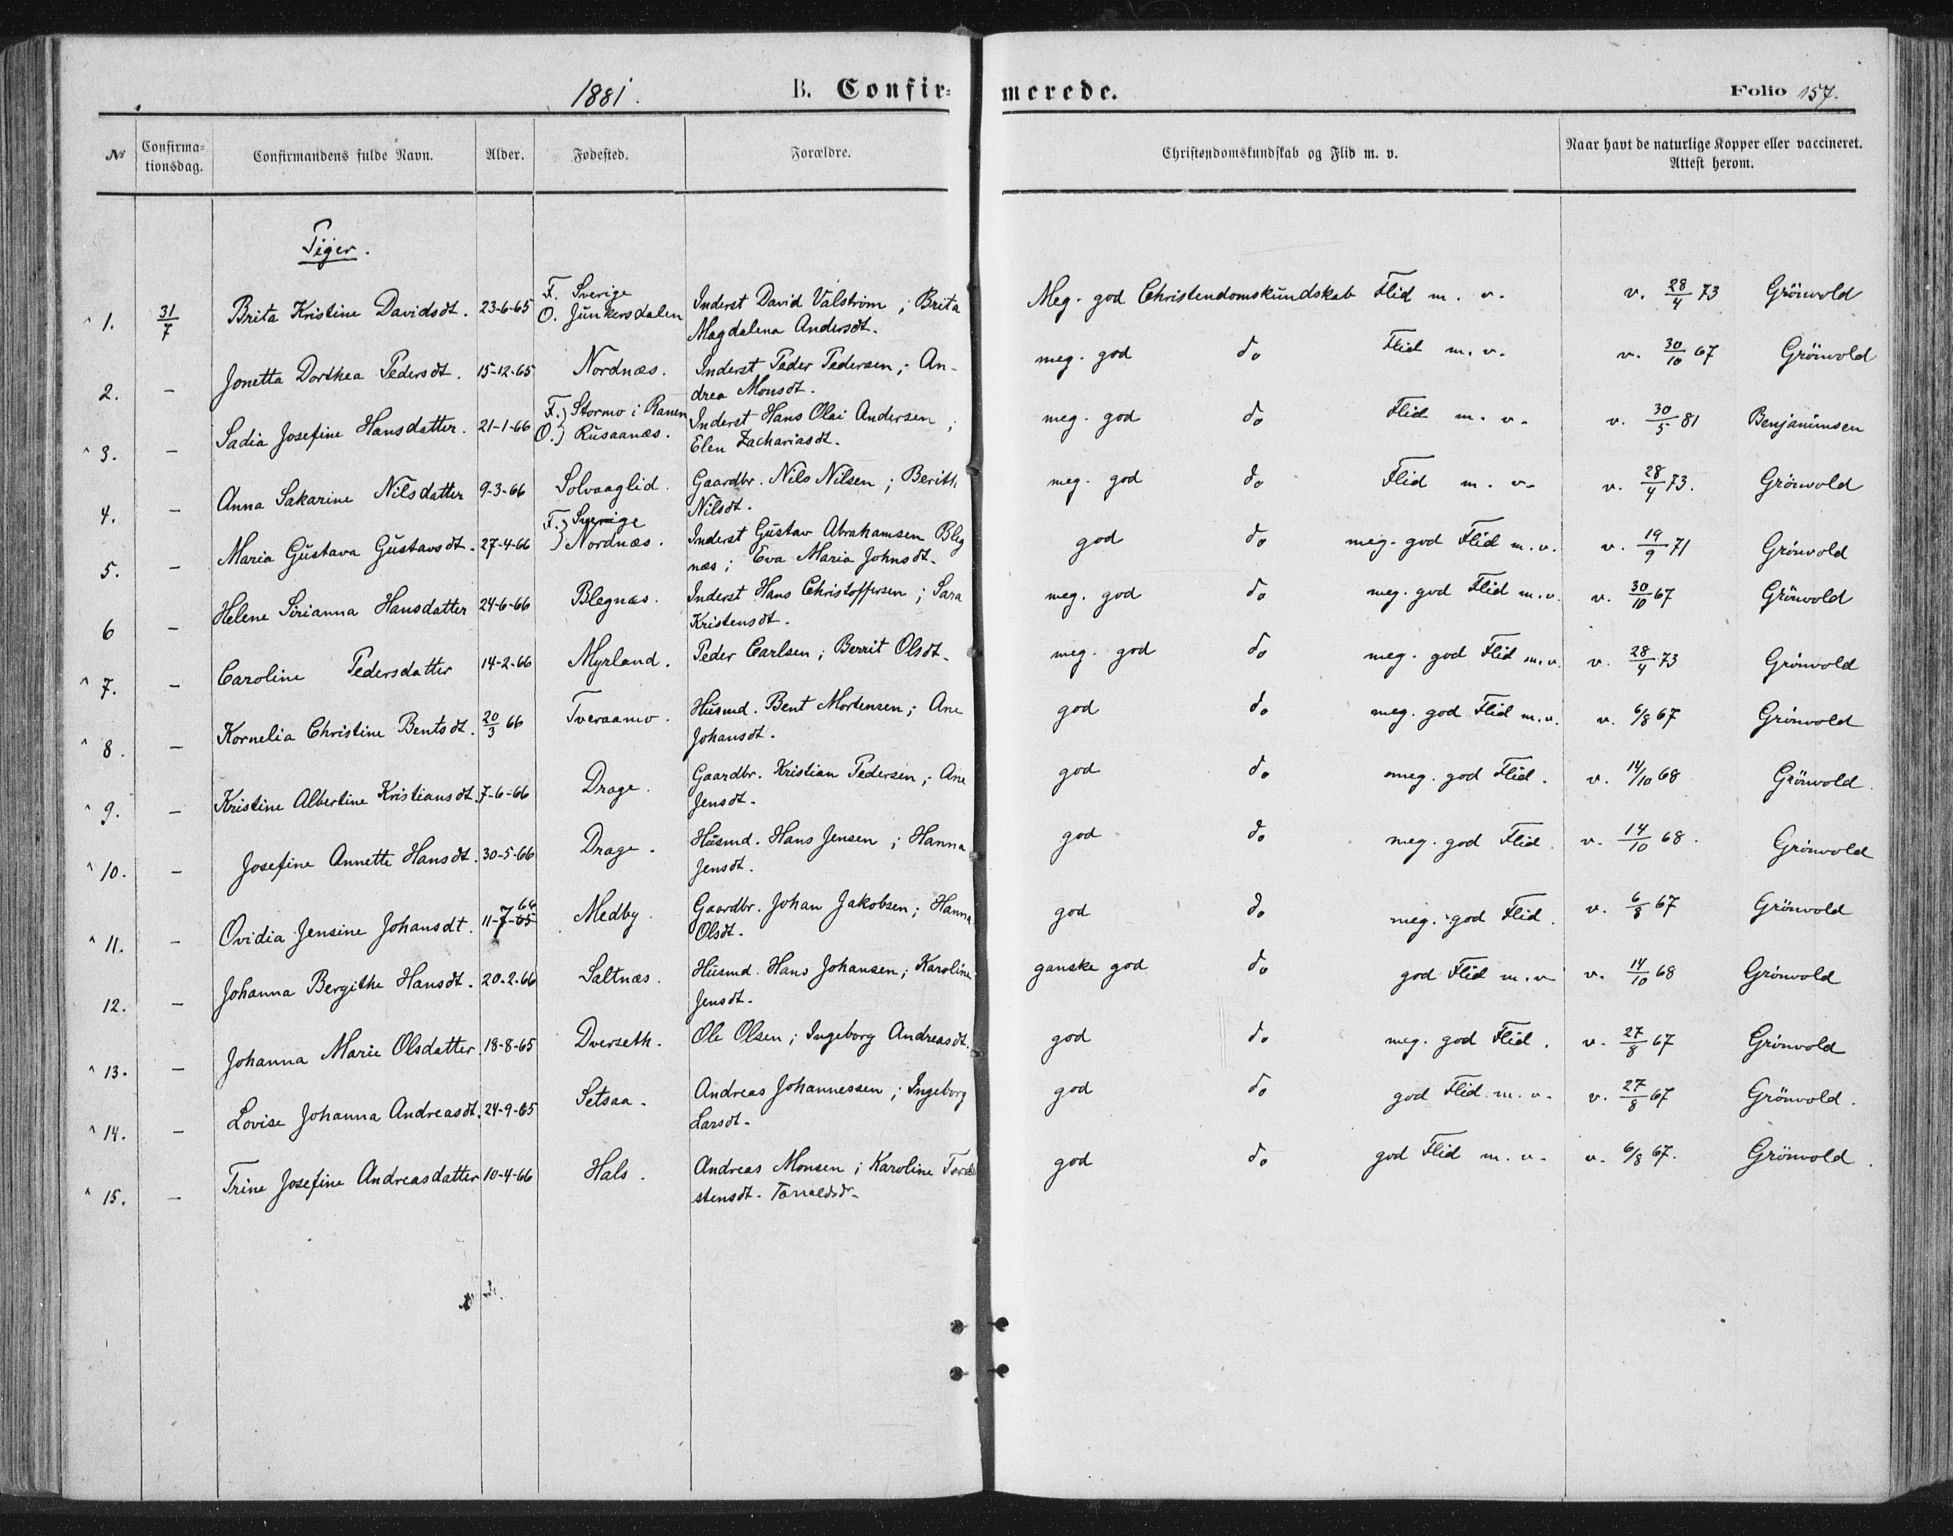 1881. B. Confir= merede. Folio 157.
№ Confirma=tionsdag. Confirmandens fulde Navn. Alder. Fødested. Forældre. Christendomskundskab og Flid m. v. Naar havt de naturlige Kopper eller vaccineret. Attest herom.
Piger.
1. 31/7 Brita Kristine Davidsdt. 23-6-65 F. Sverige O. Junkersdalen Inderst David Valström; Brita Meg. god Christendomskundskab Flid m. v. v. 28/4 73 Grönvold
Magdalena Andersdt.
2. — Jonetta Dorthea Pedersdt. 15-12-65 Nordnæs. Inderst Peder Pedersen; An- meg. god do Flid m. v. v. 30/10 67 Grönvold
drea Monsdt.
3. — Sadia Josefine Hansdatter. 21-1-66 F.) Stormo i Ranen O.) Rusaanæs. Inderst Hans Olai Andersen; meg. god do Flid m. v. v. 30/5 81 Benjaminsen
Elen Zachariasdt.
4. — Anna Sakarine Nilsdatter 9-3-66 Solvaaglid. Gaardbr. Nils Nilsen; Berith meg. god do Flid m. v. v. 28/4 73. Grönvold
Nilsdt.
5. — Maria Gustava Gustavsdt. 27-4-66 F.) Sverige ) Nordnæs. Inderst Gustav Abrahamsen Bleg god do meg. god Flid m. v. v. 19/9 71 Grönvold
næs; Eva Maria Johnsdt.
6 — Helene Sirianna Hansdatter 24-6-66 Blegnæs. Inderst Hans Christoffersen; Sara meg. god do meg. god Flid m. v. v. 30/10 67 Grönvold
Kristensdt.
7. — Caroline Pedersdatter 14-2-66 Myrland. Peder Carlsen; Berrit Olsdt. meg. god do meg. god Flid m. v. v. 28/4 73 Grönvold
8. — Kornelia Christine Bentsdt. 20/3 66 Tveraamo. Husmd. Bent Mortensen; Ane god do meg. god Flid m. v. v. 6/8 67 Grönvold
Johansdt.
9. — Kristine Albertine Kristiansdt. 7-6-66 Drage. Gaardbr. Kristian Pedersen; Ane god do meg. god Flid. v. 14/10 68 Grönvold.
Jensdt.
10. — Josefine Annette Hansdt. 30-5-66 Drage. Husmd. Hans Jensen; Hanna god do meg. god Flid. v. 14/10 68. Grönvold
Jensdt.
11. — Ovidia Jensine Johansdt. 11-7-65 64 Medby. Gaardbr. Johan Jakobsen; Hanna god do meg. god Flid. v. 6/8 67 Grönvold
Olsdt.
12. — Johanna Bergithe Hansdt. 20-2-66 Saltnæs. Husmd. Hans Johansen; Karoline ganske god do god Flid m. v. v. 14/10 68 Grönvold
Jensdt.
13. — Johanna Marie Olsdatter. 18-8-65 Dverseth. Ole Olsen; Ingeborg Andreasdt. god do meg. god Flid. v. 27/8 67 Grönvold
14. — Lovise Johanna Andreasdt. 24-9-65 Setsaa. Andreas Johannessen; Ingeborg god do god Flid. m. v. v. 27/8 67 Grönvold.
Larsdt.
15. — Trine Josefine Andreasdatter 10-4-66 Hals. Andreas Monsen; Karoline god do god Flid m. v. v. 6/8 67. Grönvold.
stensdt.